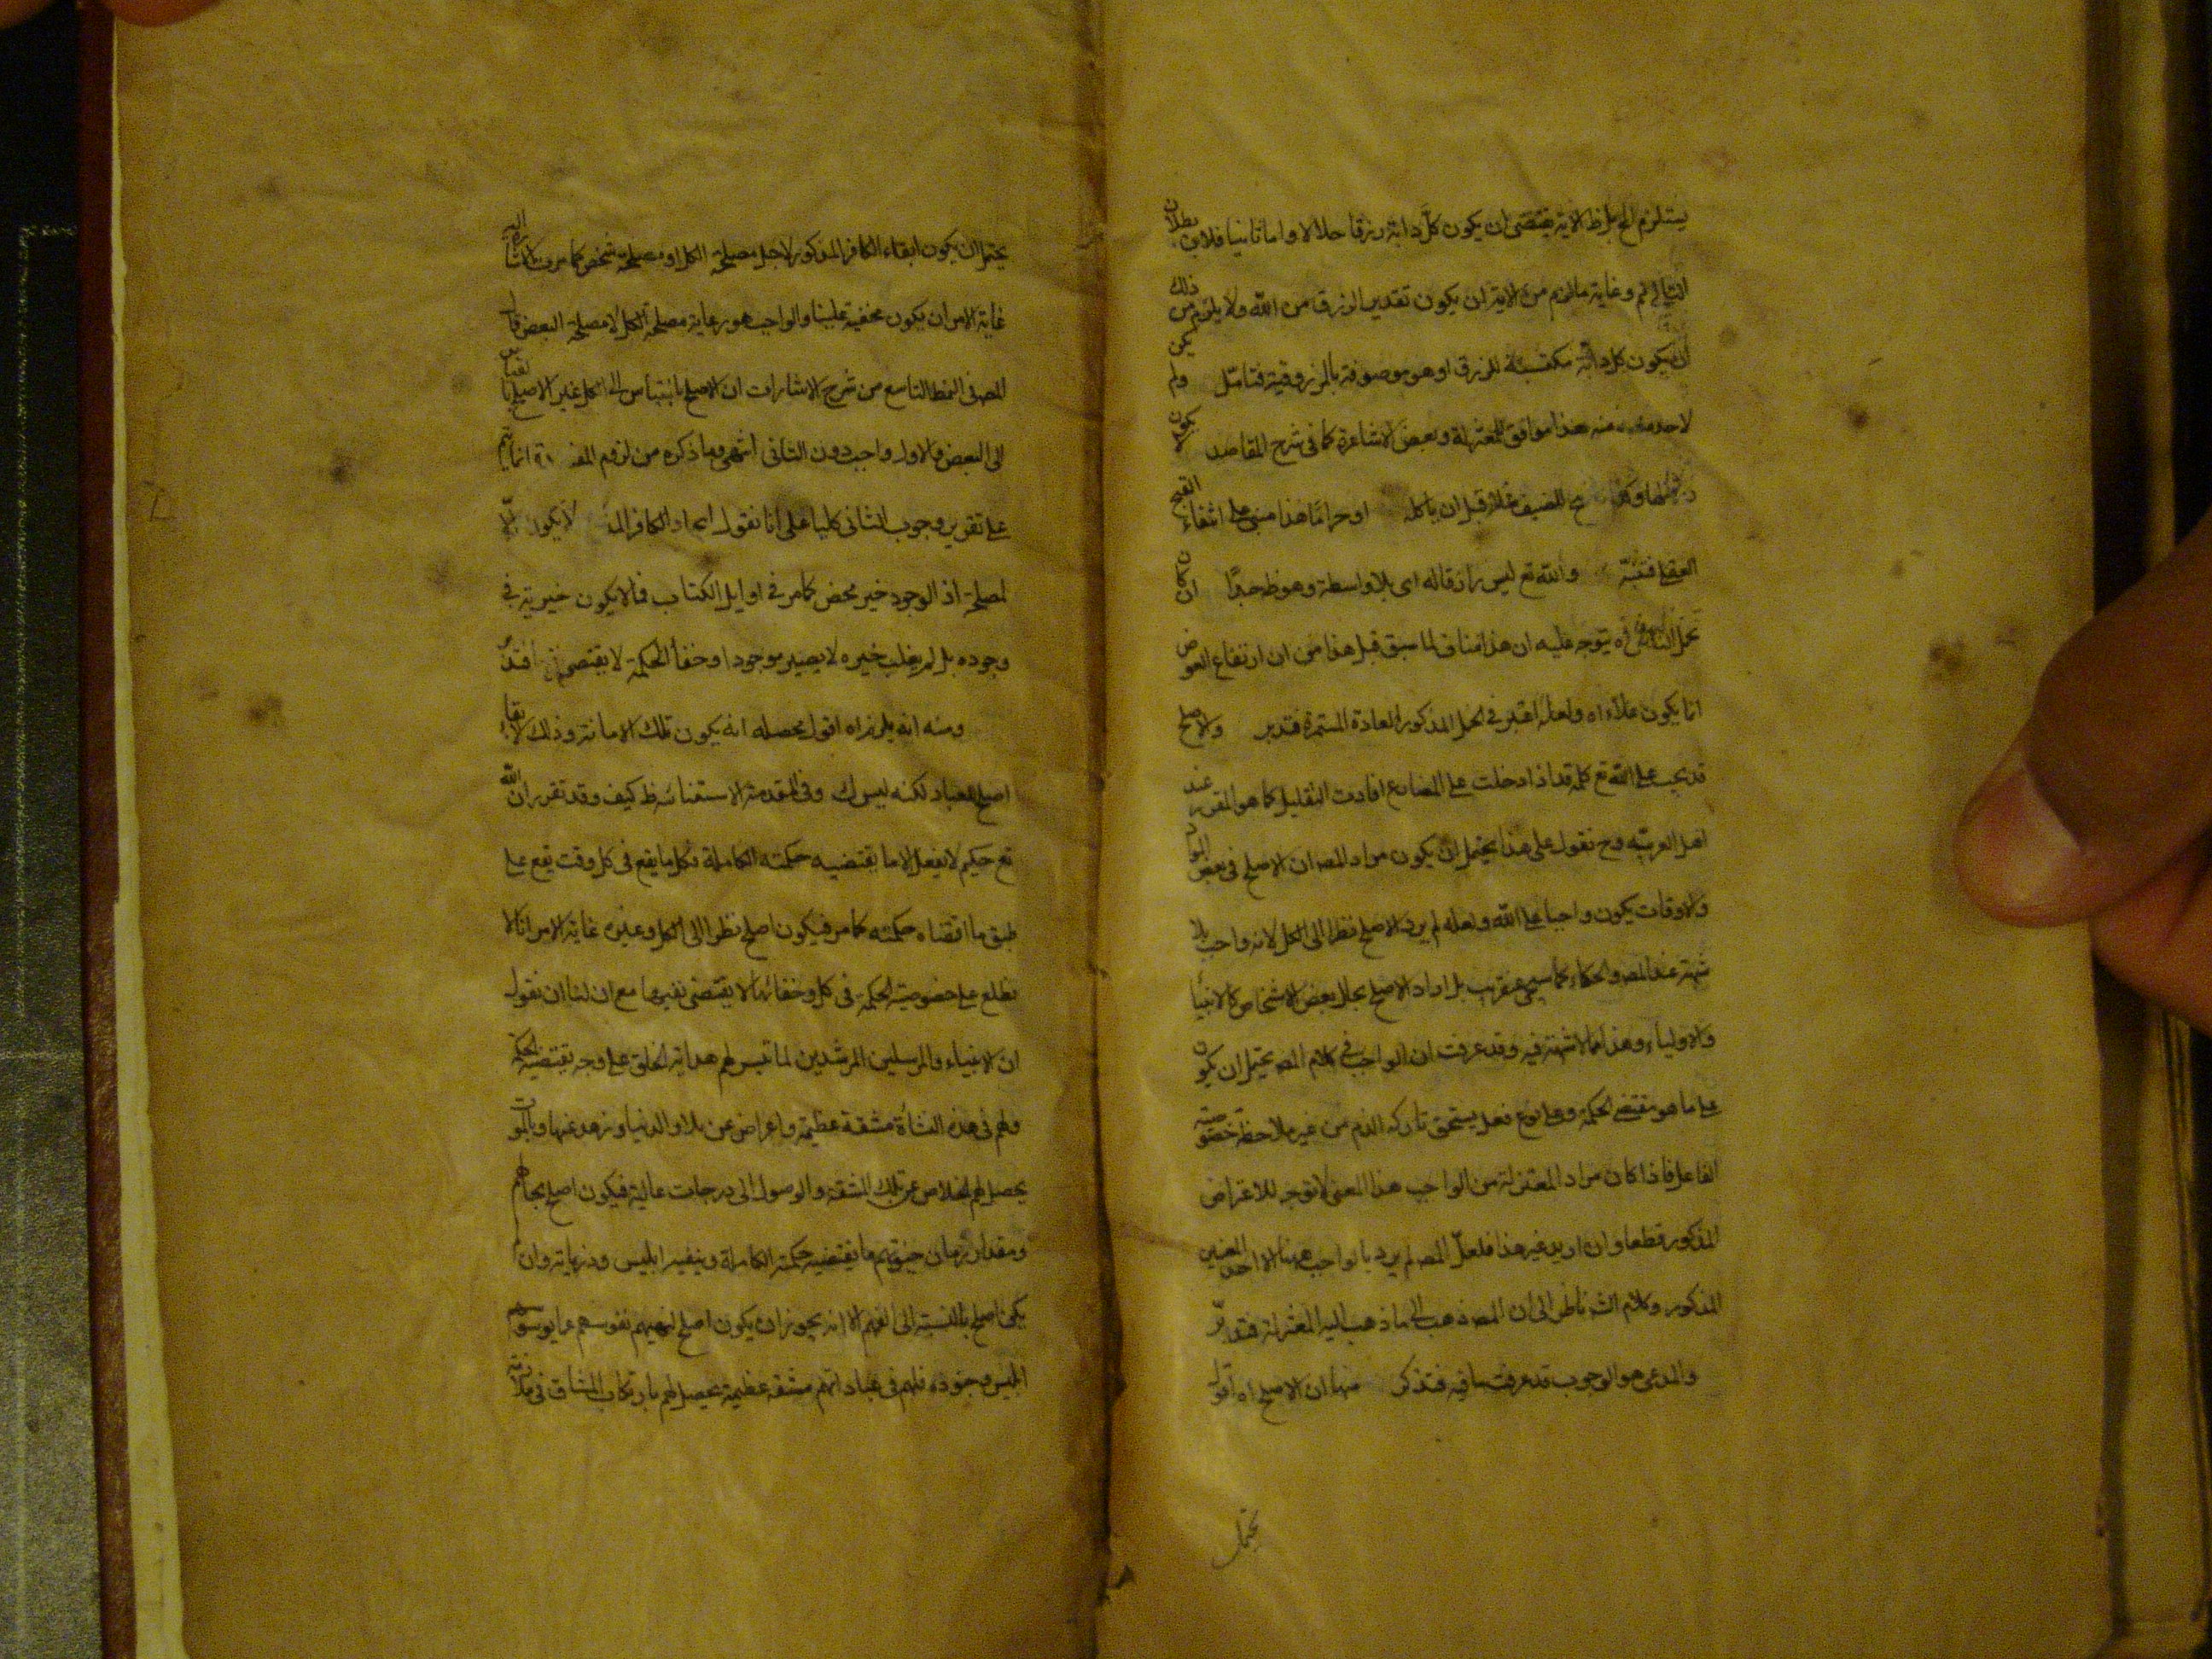 يستلزم الح بل ظ الاية يقتضى ان يكون كل دابة رزقا حلالا واما ثانيا فلان بطلان
التالى ثم وغاية ما لزم من الاية ان يكون تقدير الرزق من الله ولا يلزم من ذلك
ان يكون كل دابة مكتسبة للرزق او هو موصوفة بالمرزوقية فتامل ولم يكن
لاحد منعه منه هذا موافق للمعتزلة وبعض الاشاعرة كما فى شرح المقاصد لا يكون
للضيف مثلا قبل ان ياكله او حراما هذا مبنى على انتفاء القبح
العقلى فتنبه والله تع ليس رازقا له اى بلا واسطة وهو ظ جدا ان كان
يتوجه عليه ان هذا مناف لما سبق قبل هذا من ان ارتفاع العوض
انما يكون غلاء اه ولعله اعتبر فى المحل المذكور العادة المستمرة فتدبر والاصلح
قد يجب على الله تع كلمة قد اذا دخلت على المضارع افادت التقليل كما هو المقرر عند
اهل العربية وح نقول على هذا يحتمل ان يكون مراد المص ان الاصلح فى بعض المواد
والاوقات يكون واجبا على الله ولعله لم يرد الاصلح نظرا الى الكل لانه واجب بلا
شبهة عند المص والحكماء كما سيجئ عنقريب بل اراد الاصلح بحال بعض الاشخاص كالانبياء
والاولياء وهذا مما لا شبهة فيه وقد عرفت ان الواجب فى كلام المص يحتمل ان يكون
على ما هو مقتضى الحكمة وعلى نوع فعل يستحق تاركه الذم من غير ملاحظة خصوصية
الفاعل فاذا كان مراد المعتزلة من الواجب هذا المعنى لا توجه للاعتراض
المذكور قطعا وان اريد غير هذا فلعل المص لم يرد بالواجب ههنا الا احد المعنيين
المذكور وكلام الش ناظر الى ان المص ذهب الى ما ذهب اليه المعتزلة فتدبر
والمدعى هو الوجوب قد عرفت ما فيه فتذكر منها ان الاصلح اه اقول
يحتمل
يحتمل ان يكون ابقاء الكافر المذكور لاجل مصلحة الكل او مصلحة شخص كما مرت الاشارة اليه
غاية الامر ان يكون مخفية علينا والواجب هو رعاية مصلحة الكل لا مصلحة البعض قال
المص فى النمط التاسع من شرح الاشارات ان الاصلح بالقياس الى الكل غير الاصلح بالقياس
الى البعض والاول واجب دون الثانى انتهى وما ذكره من لزوم المفـ انما يتم
على تقرير وجوب الثانى كليا على انا نقول ايجاد الكافر لا يكون الا
لمصلحة اذ الوجود خير محض كما مر فى اوايل الكتاب فما لا يكون خيرية فى
وجوده بل لم يغلب خيره لا يصير موجودا وخفأ الحكمة لا يقتضى
ومنه انه يلزم اه اقول محصله انه يكون تلك الاماتة وذلك الابقاء
اصلح للعباد لكنه ليس ك وفى المقدمة الاستثنائية ظ كيف وقد تقرر ان الله
تع حكيم لا يفعل الا ما يقتضيه حكمته الكاملة فكل ما يقع فى كل وقت يقع على
طبق ما اقتضاه حكمته كما مر فيكون اصلح نظرا الى الكل وغيره غاية الامر انا لا
نطلع على خصوصية الحكمة فى كل وخفائها لا يقتضى نفيها مع ان لنا ان نقول
ان الانبياء والمرسلين المرشدين لما تيسر لهم هداية الخلق على وجه يقتضيه الحكمة
ولهم فى هذه النشأة مشقة عظيمة واعراض عن الدنيا وزهد عنها وبالموت
يحصل لهم الخلاص عن تلك المشقة والوصول الى درجات عالية فيكون اصلح بحالهم
ومقدار زمان حيوتهم ما يقتضيه حكمته الكاملة وتبقيه ابليس وذرياته وان لم
يكن اصلح بالنسبة الى انفسهم الا انه يجوز ان يكون اصلح نفوسهم عما يوسوسهم
ابليس وجنوده فلهم فى عباداتهم مشقة عظيمة يحصل لهم بارتكاب المشاق فى ملازمة